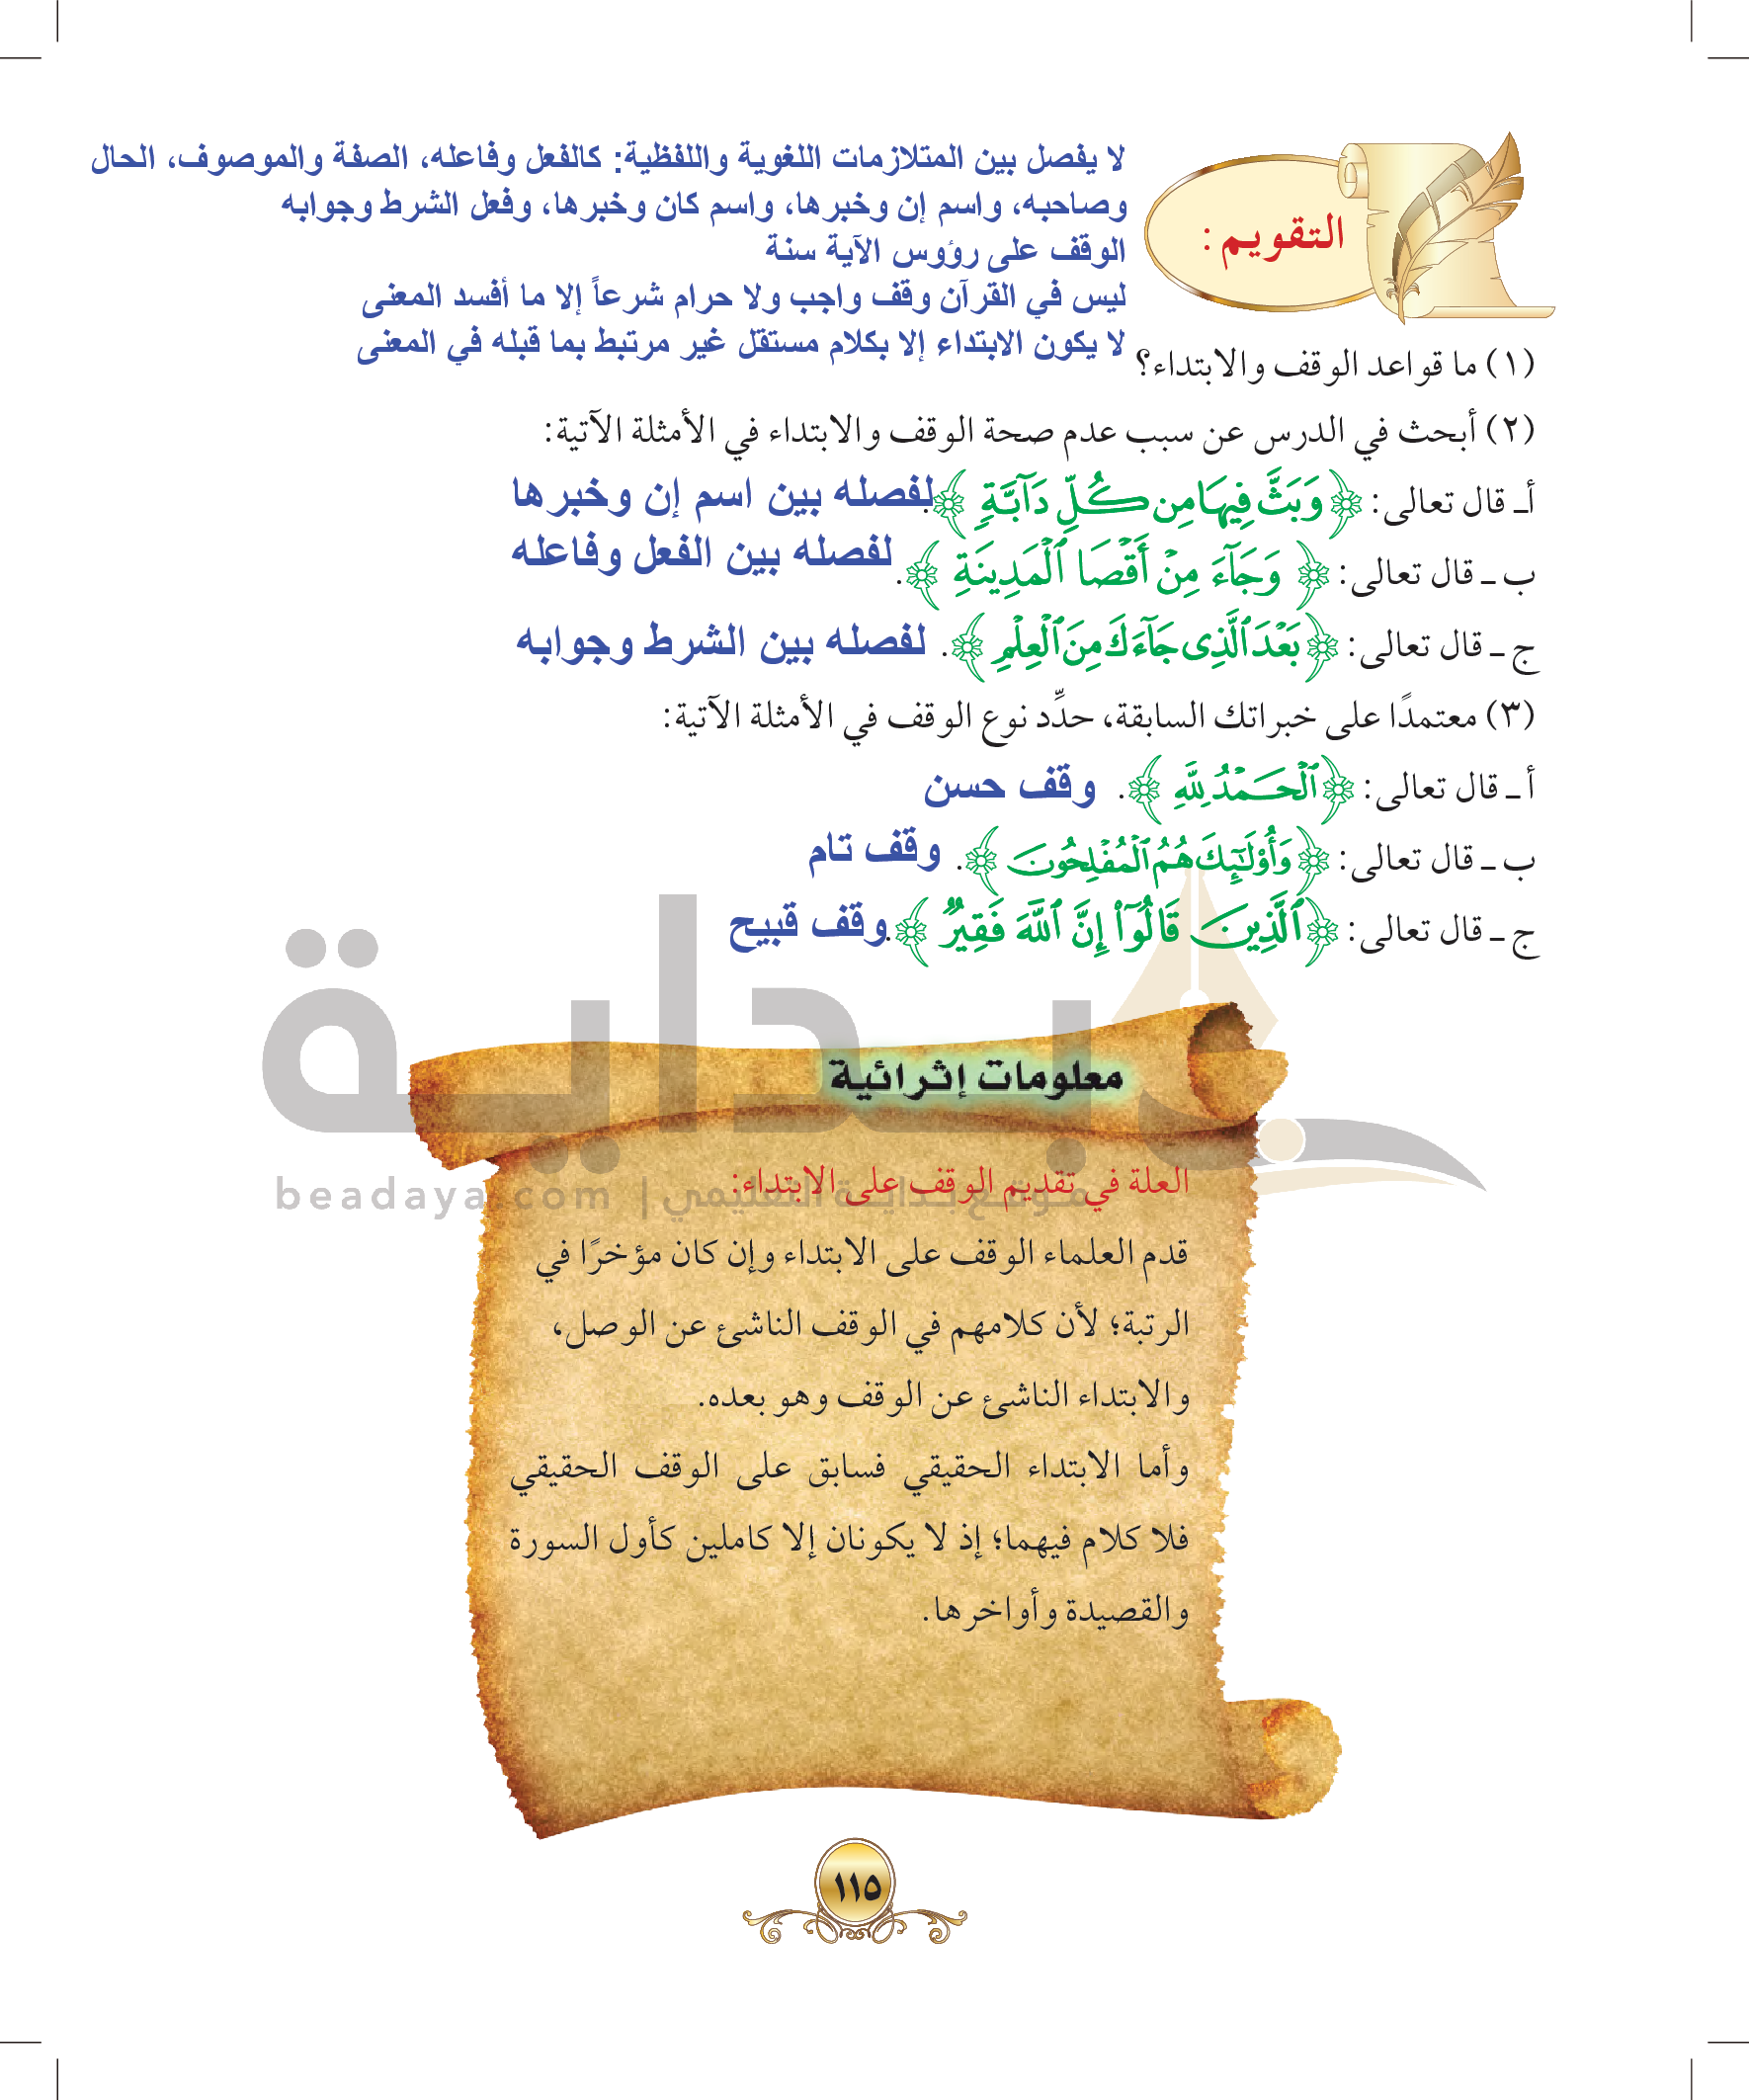 لا يفصل بين المتلازمات اللغوية واللفظية: كالفعل وفاعله، الصفة والموصوف، الحال
وصاحبه، واسم إن وخبرها، واسم كان وخبرها، وفعل الشرط وجوابه
الوقف على رؤوس الآية سنة
ليس في القرآن وقف واجب ولا حرام شرعاً إلا ما أفسد المعنى
لا يكون الابتداء إلا بكلام مستقل غير مرتبط بما قبله في المعنى
التقويم :
(١) ما قواعد الوقف والابتداء؟
(٢) أبحث في الدرس عن سبب عدم صحة الوقف والابتداء في الأمثلة الآتية:
أـ قال تعالى: ﴿وَبَثَّ فِيهَا مِن كُلِّ دَآبَّةٖ﴾. لفصله بين اسم إن وخبرها
ب ـ قال تعالى: ﴿وَجَآءَ مِنۡ أَقۡصَا ٱلۡمَدِينَةِ﴾. لفصله بين الفعل وفاعله
ج ـ قال تعالى: ﴿بَعۡدَ ٱلَّذِى جَآءَكَ مِنَ ٱلۡعِلۡمِ﴾. لفصله بين الشرط وجوابه
(٣) معتمدًا على خبراتك السابقة، حدِّد نوع الوقف في الأمثلة الآتية:
أ ـ قال تعالى: ﴿ٱلۡحَمۡدُ لِلَّهِ﴾. وقف حسن
ب ـ قال تعالى: ﴿وَأُوْلَٰٓئِكَ هُمُ ٱلۡمُفۡلِحُونَ﴾. وقف تام
ج ـ قال تعالى: ﴿ٱلَّذِينَ قَالُوٓاْ إِنَّ ٱللَّهَ فَقِيرٞ﴾. وقف قبيح
بداية
معلومات إثرائية
beadaya.com | موقع بداية التعليمي
العلة في تقديم الوقف على الابتداء:
قدم العلماء الوقف على الابتداء وإن كان مؤخرًا في
الرتبة؛ لأن كلامهم في الوقف الناشئ عن الوصل،
والابتداء الناشئ عن الوقف وهو بعده.
وأما الابتداء الحقيقي فسابق على الوقف الحقيقي
فلا كلام فيهما؛ إذ لا يكونان إلا كاملين كأول السورة
والقصيدة وأواخرها.
١١٥